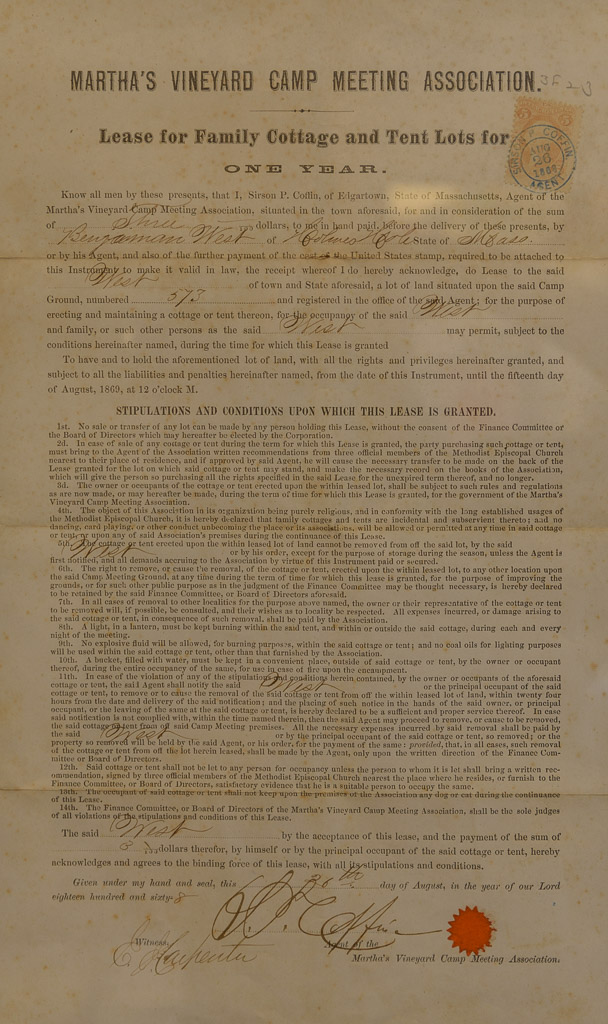 3F23
MARTHA'S VINEYARD CAMP MEETING ASSOCIATION.
Lease for Family Cottage and Tent Lots for
ONE YEAR.
SIRSON P. COFFIN
AUG
26
AGENT.
Know all men by these presents, that I, Sirson P. Coffin, of Edgartown, State of Massachusetts, Agent of the
Martha's Vineyard Camp Meeting Association, situated in the town aforesaid, for and in consideration of the sum
of Three dollars, to me in hand paid, before the delivery of these presents, by
Benjaman West of Holmes Hole State of Mass.
or by his Agent, and also of the further payment of the cost of the United States stamp, required to be attached to
this Instrument to make it valid in law, the receipt whereof I do hereby acknowledge, do Lease to the said
West of town and State aforesaid, a lot of land situated upon the said Camp
Ground, numbered 573 and registered in the office of the said Agent; for the purpose of
erecting and maintaining a cottage or tent thereon, for the occupancy of the said West
and family, or such other persons as the said West may permit, subject to the
conditions hereinafter named, during the time for which this Lease is granted
To have and to hold the aforementioned lot of land, with all the rights and privileges hereinafter granted, and
subject to all the liabilities and penalties hereinafter named, from the date of this Instrument, until the fifteenth day
of August, 1869, at 12 o'clock M.
STIPULATIONS AND CONDITIONS UPON WHICH THIS LEASE IS GRANTED.
1st. No sale or transfer of any lot can be made by any person holding this Lease, without the consent of the Finance Committee or
the Board of Directors which may hereafter be elected by the Corporation.
2d. In case of sale of any cottage or tent during the term for which this Lease is granted, the party purchasing such cottage or tent,
must bring to the Agent of the Association written recommendations from three official members of the Methodist Episcopal Church
nearest to their place of residence, and if approved by said Agent, he will cause the necessary transfer to be made on the back of the
Lease granted for the lot on which said cottage or tent may stand, and make the necessary record on the books of the Association,
which will give the person so purchasing all the rights specified in the said Lease for the unexpired term thereof, and no longer.
3d. The owner or occupants of the cottage or tent erected upon the within leased lot, shall be subject to such rules and regulations
as are now made, or may hereafter be made, during the term of time for which this Lease is granted, for the government of the Martha's
Vineyard Camp Meeting Association.
4th. The object of this Association in its organization being purely religious, and in conformity with the long established usages of
the Methodist Episcopal Church, it is hereby declared that family cottages and tents are incidental and subservient thereto; and no
dancing, card playing, or other conduct unbecoming the place or its associations, will be allowed or permitted at any time in said cottage
or tent, or upon any of said Association's premises during the continuance of this Lease.
5th. The cottage or tent erected upon the within leased lot of land cannot be removed from off the said lot, by the said
West or by his order, except for the purpose of storage during the season, unless the Agent is
first notified, and all demands accruing to the Association by virtue of this Instrument paid or secured.
6th. The right to remove, or cause the removal, of the cottage or tent, erected upon the within leased lot, to any other location upon
the said Camp Meeting Ground, at any time during the term of time for which this lease is granted, for the purpose of improving the
grounds, or for such other public purpose as in the judgment of the Finance Committee may be thought necessary, is hereby declared
to be retained by the said Finance Committee, or Board of Directors aforesaid.
7th. In all cases of removal to other localities for the purpose above named, the owner or their representative of the cottage or tent
to be removed will, if possible, be consulted, and their wishes as to locality be respected. All expenses incurred, or damage arising to
the said cottage or tent, in consequence of such removal, shall be paid by the Association.
8th. A light, in a lantern, must be kept burning within the said tent, and within or outside the said cottage, during each and every
night of the meeting.
9th. No explosive fluid will be allowed, for burning purposes, within the said cottage or tent; and no coal oils for lighting purposes
will be used within the said cottage or tent, other than that furnished by the Association.
10th. A bucket, filled with water, must be kept in a convenient place, outside of said cottage or tent, by the owner or occupant
thereof, during the entire occupancy of the same, for use in case of fire upon the encampment.
11th. In case of the violation of any of the stipulations and conditions herein contained, by the owner or occupants of the aforesaid
cottage or tent, the said Agent shall notify the said West or the principal occupant of the said
cottage or tent, to remove or to cause the removal of the said cottage or tent from off the within leased lot of land, within twenty four
hours from the date and delivery of the said notification; and the placing of such notice in the hands of the said owner, or principal
occupant, or the leaving of the same at the said cottage or tent, is hereby declared to be a sufficient and proper service thereof. In case
said notification is not complied with, within the time named therein, then the said Agent may proceed to remove, or cause to be removed,
the said cottage or tent from off said Camp Meeting premises. All the necessary expenses incurred by said removal shall be paid by
the said West or by the principal occupant of the said cottage or tent, so removed; or the
property so removed will be held by the said Agent, or his order, for the payment of the same: provided, that in all cases, such removal
of the cottage or tent from off the lot herein leased, shall be made by the Agent, only upon the written direction of the Finance Committee
or Board of Directors.
12th. Said cottage or tent shall not be let to any person for occupancy unless the person to whom it is let shall bring a written recommendation,
signed by three official members of the Methodist Episcopal Church nearest the place where he resides, or furnish to the
Finance Committee, or Board of Directors, satisfactory evidence that he is a suitable person to occupy the same.
13th. The occupant of said cottage or tent shall not keep upon the premises of the Association any dog or cat during the continuance
of this Lease.
14th. The Finance Committee, or Board of Directors of the Martha's Vineyard Camp Meeting Association, shall be the sole judges
of all violations of the stipulations and conditions of this Lease.
The said West by the acceptance of this lease, and the payment of the sum of
3 dollars therefor, by himself or by the principal occupant of the said cottage or tent, hereby
acknowledges and agrees to the binding force of this lease, with all its stipulations and conditions.
Given under my hand and seal, this 26th day of August, in the year of our Lord
eighteen hundred and sixty-8
S. P. Coffin
Witness, Agent of the
E Carpenter Martha's Vineyard Camp Meeting Association.